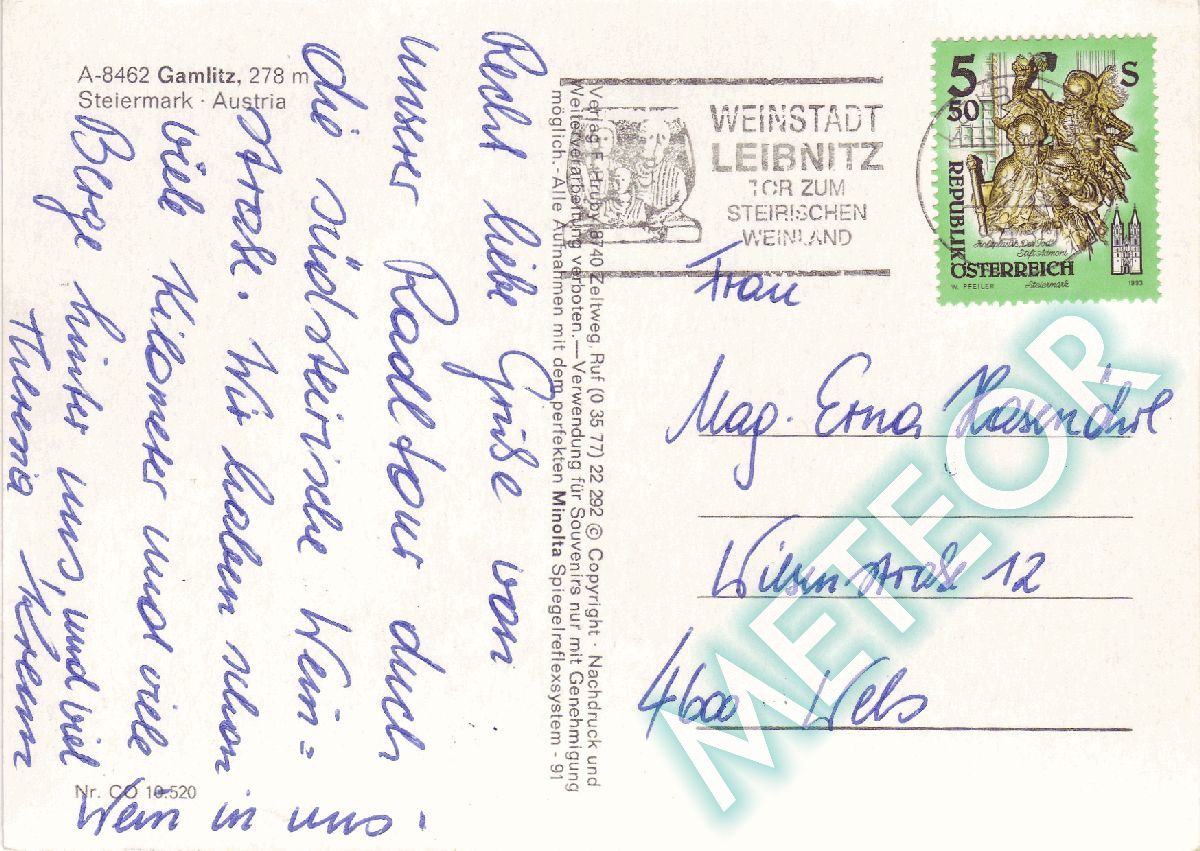 A-8462 Gamlitz, 278 m
Steiermark · Austria
Recht liebe Grüße von
unserer Radltour durch
die südsteirische Wein=
straße. Wir haben schon
viele Kilometer und viele
Berge hinter uns, und viel
Wein in uns.
Theresia Krenn
Nr. CO 10.520
Verlag F. Hruby, 8740 Zeltweg, Ruf (0 35 77) 22 292 © Copyright · Nachdruck und
Weiterverarbeitung verboten. — Verwendung für Souvenirs nur mit Genehmigung
möglich. - Alle Aufnahmen mit dem perfekten Minolta Spiegelreflexsystem - 91
WEINSTADT
LEIBNITZ
TOR ZUM
STEIRISCHEN
WEINLAND
5 S
50
REPUBLIK
ÖSTERREICH
Steiermark
W. PFEILER
1993
Frau
Mag. Erna Hasenöhrl
straße 12
4600 Wels
METEOR